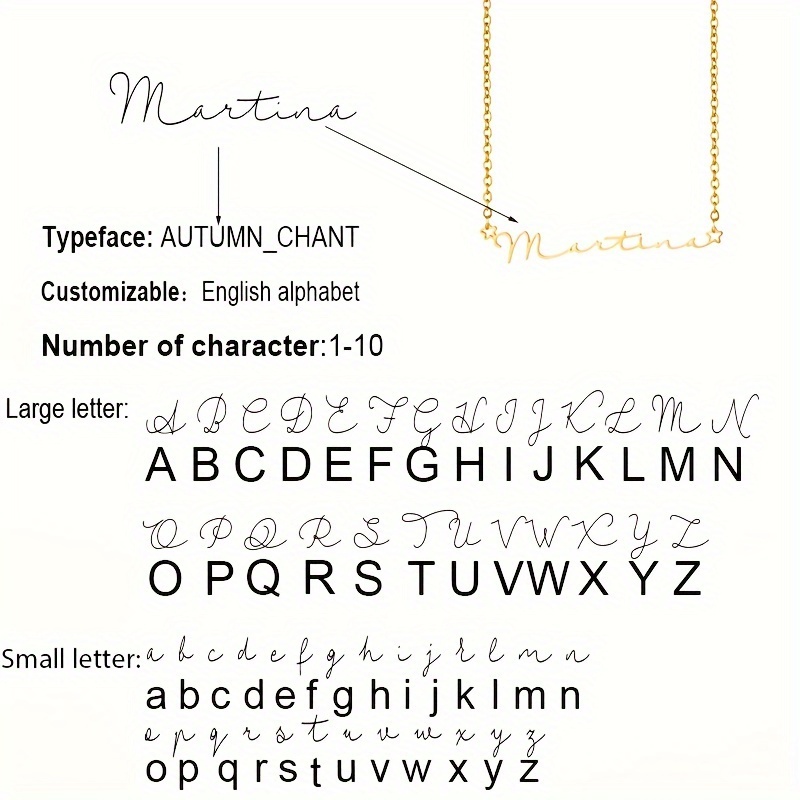 Martina
Martina
Typeface: AUTUMN_CHANT
Customizable：English alphabet
Number of character:1-10
Large letter: A B C D E F G H I J K L M N
A B C D E F G H I J K L M N
O P Q R S T U V W X Y Z
O P Q R S T U V W X Y Z
Small letter: a b c d e f g h i j k l m n
a b c d e f g h i j k l m n
o p q r s t u v w x y z
o p q r s t u v w x y z